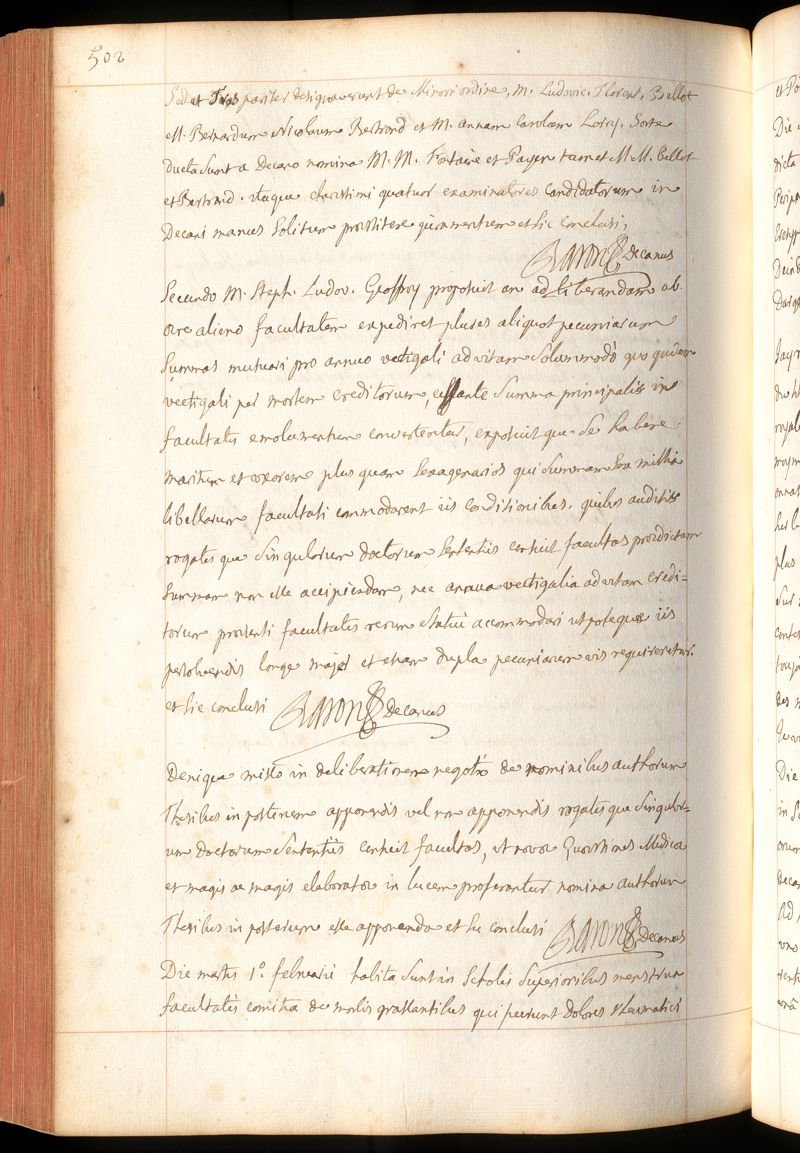 502
Sed et Tres pariter designaverunt de Minori ordine, M. Ludovic. Florent. Bellot
M. Bernardum Nicolaum Bertrand et M. annam Carolum Lorry. Sorte
ducta sunt a Decano nomina M. M. Fontaine et Payen tum et M. M. Bellot
et Bertrand. itaque clarissimi quatuor examinatores candidatorum in
Decani manus solitum prostitere juramentum et sic conclusi,
Baron Decanus
Secundo M. Steph. Ludov. Geoffroy proposuit an ad liberandam ab
ære alieno facultatem expediret plures aliquot pecuniarum
summas mutuari pro annuo vectigali ad vitam solummodo quo quidem
vectigali per mortem creditorum, cessante summa principalis in
facultatis emolumentum converteretur, exposuit que se habere
maritum et uxorem plus quam sexagenarios qui summam sex millia
libellarum facultati commodarent iis conditionibus. quibus auditis
rogatis que singulorum doctorum sententiis censuit facultas prædictam
summam non esse accipiendam, nec annua vectigalia ad vitam credi=
torum præsenti facultatis rerum statui accommodari utpote quæ iis
persolvendis longe major et etiam dupla pecuniarum vis requireretur.
et sic conclusi Baron Decanus
Denique misso in deliberationem negotio de nominibus authorum
Thesibus in posterum apponendis vel non apponendis rogatis que singulor=
um doctorum sententiis censuit facultas, ut novæ Quæstiones Medicæ
et magis ac magis elaboratæ in lucem proferantur nomina authorum
Thesibus in posterum esse apponenda et sic conclusi Baron Decanus
Die martis 1o. februarii habita sunt in Scholis Superioribus menstrua
facultatis comitia de morbis grassantibus qui fuerunt dolores rheumatici